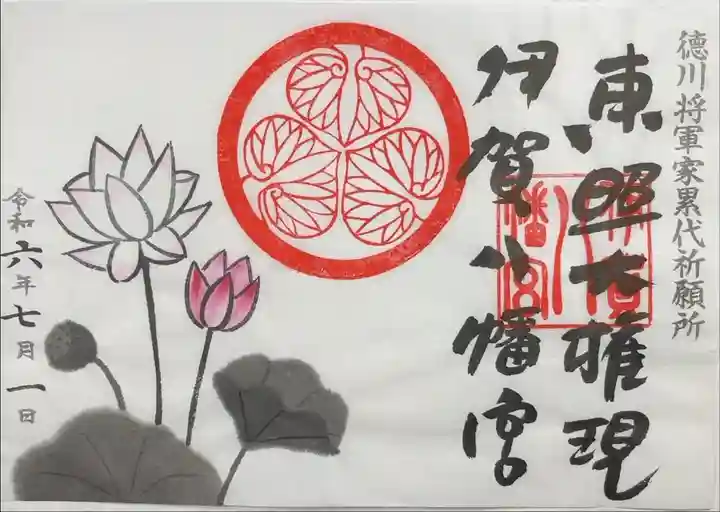 徳川将軍家累代祈願所
東照大権現
伊賀八幡宮
伊賀八幡宮
令和六年七月一日